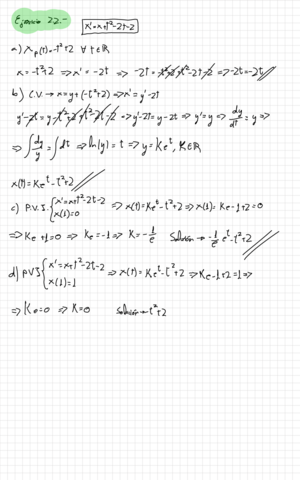 Ejercicio 22.- x'=x+t²-2t-2
a) xp(t)=-t²+2 ∀ t∈ℝ
x=-t²+2 => x'=-2t => -2t=-t²+2+t²-2t-2 => -2t=-2t
b) C.V. -> x=y+(-t²+2) => x'=y'-2t
y'-2t=y-t²+2+t²-2t-2 => y'-2t=y-2t => y'=y => dy/dt=y =>
=> ∫dy/y=∫dt => ln(y)=t => y=Ke^t, K∈ℝ
x(t)=Ke^t-t²+2
c) P.V.I. { x'=x+t²-2t-2 x(1)=0 => x(t)=Ke^t-t²+2 => x(1)=Ke-1+2=0
=> Ke+1=0 => Ke=-1 => K=-1/e Solución -> -1/e e^t-t²+2
d) PVI { x'=x+t²-2t-2 x(1)=1 => x(t)=Ke^t-t²+2 => Ke-1+2=1 =>
=> Ke=0 => K=0 Solución -> -t²+2